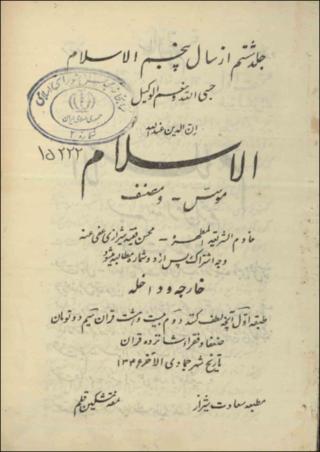 جلد هشتم از سال پنجم الاسلام
حسبی الله و نعم الوکیل
ان الدین عند الله
الاسلام
۱۵۲۲۲
جمهوری اسلامی ایران
موسس - و مصنف
خادم الشریعة المطهرة - محسن فقیه شیرازی عفی عنه
وجه اشتراک پس از دو شماره مطالبه میشود
خارجه و داخله
طبقه اول آنچه لطف کنند دوم بیست و هشت قران سیم دو تومان
ضعفا و فقراء شانزده قران
تاریخ شهر جمادی الآخر ۱۳۴۶
مطبعه سعادت شیراز
مشکین قلم